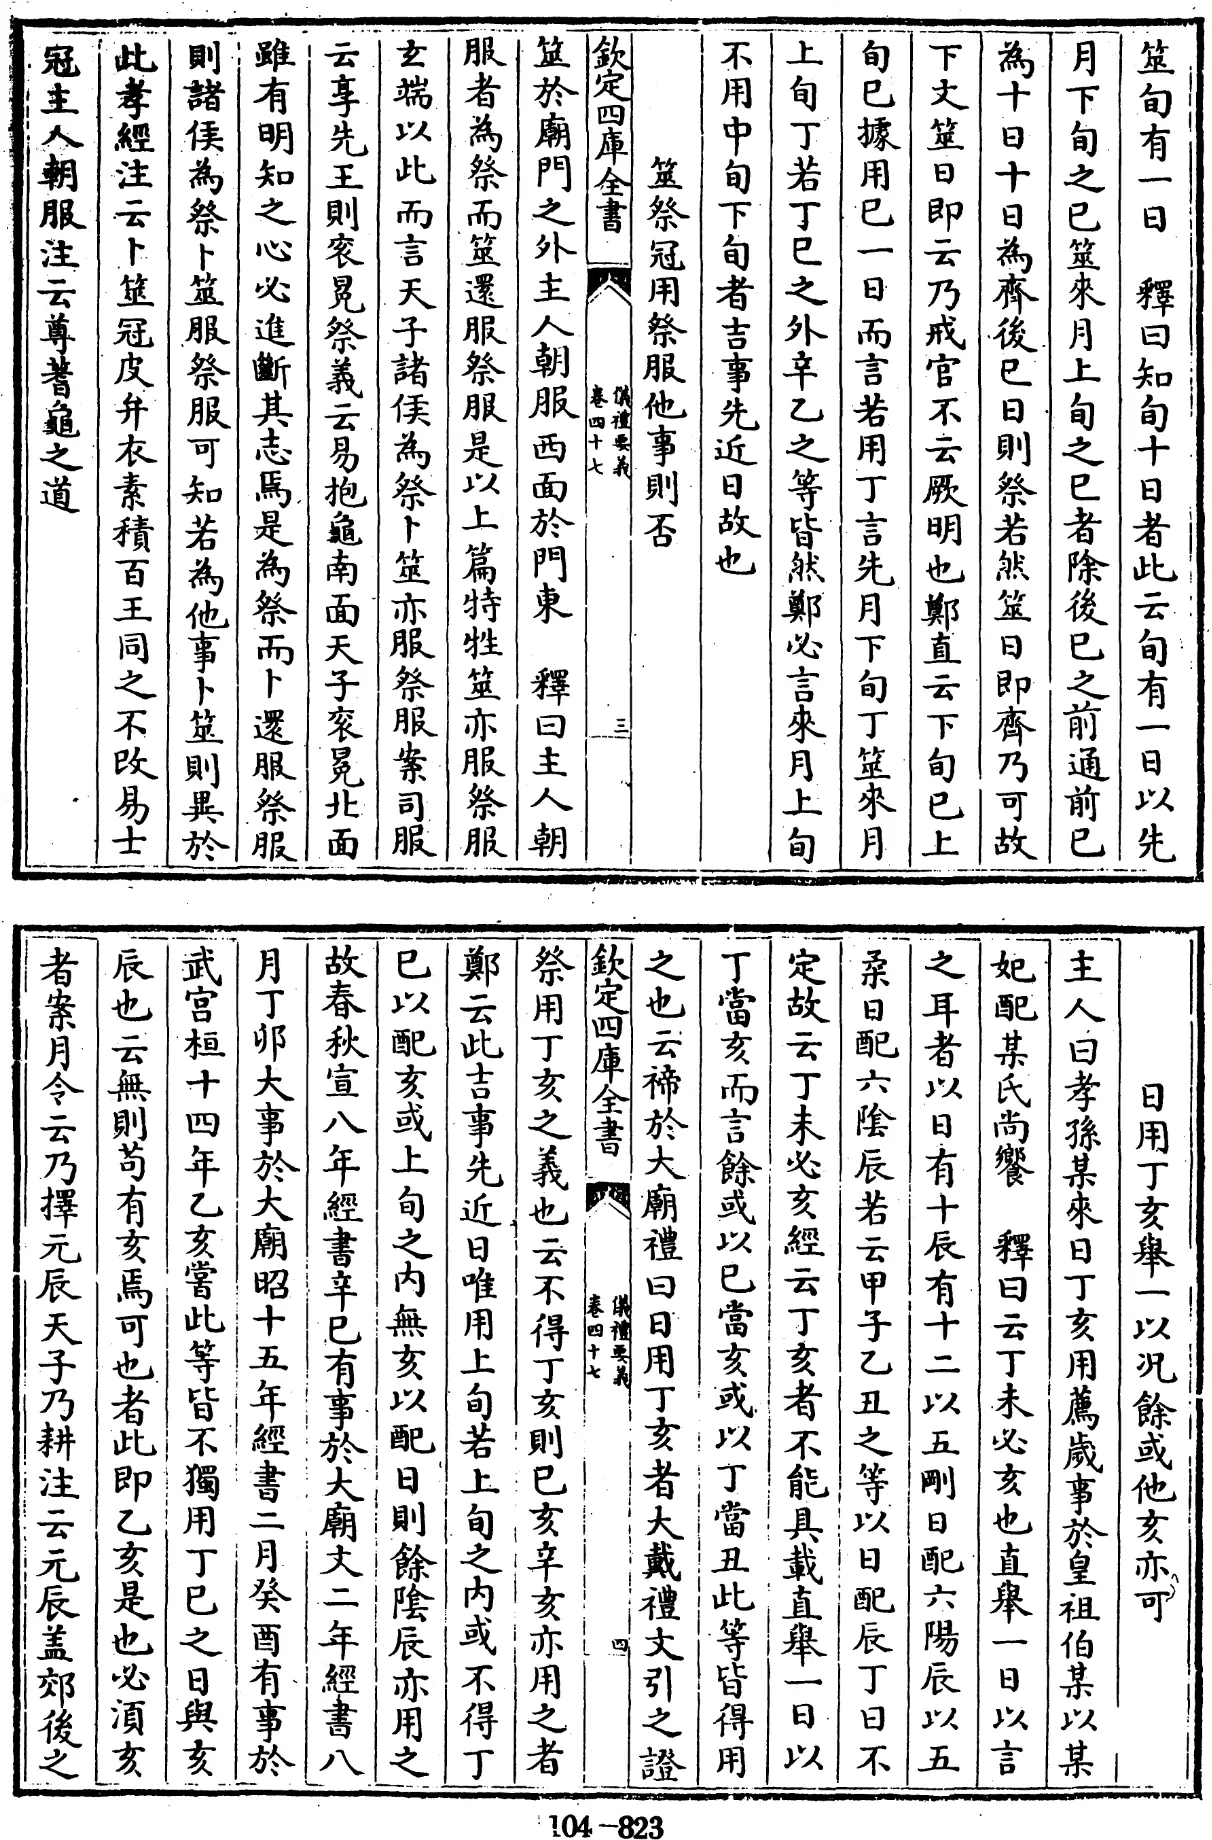 筮旬有一日　釋曰知旬十日者此云旬有一日以先
月下旬之巳筮來月上旬之巳者除後巳之前通前巳
為十日十日為齊後巳日則祭若然筮日即齊乃可故
下文筮日即云乃戒官不云厥明也鄭直云下旬巳上
旬巳據用巳一日而言若用丁言先月下旬丁筮來月
上旬丁若丁巳之外辛乙之等皆然鄭必言來月上旬
不用中旬下旬者吉事先近日故也
筮祭冠用祭服他事則否
欽定四庫全書
儀禮要義
卷四十七
三
筮於廟門之外主人朝服西面於門東　釋曰主人朝
服者為祭而筮還服祭服是以上篇特牲筮亦服祭服
玄端以此而言天子諸侯為祭卜筮亦服祭服案司服
云享先王則衮冕祭義云易抱龜南面天子衮冕北面
雖有明知之心必進斷其志焉是為祭而卜還服祭服
則諸侯為祭卜筮服祭服可知若為他事卜筮則異於
此孝經注云卜筮冠皮弁衣素積百王同之不改易士
冠主人朝服注云尊蓍龜之道
日用丁亥舉一以況餘或他亥亦可
主人曰孝孫某來日丁亥用薦歲事於皇祖伯某以某
妃配某氏尚饗　釋曰云丁未必亥也直舉一日以言
之耳者以日有十辰有十二以五剛日配六陽辰以五
柔日配六陰辰若云甲子乙丑之等以日配辰丁日不
定故云丁未必亥經云丁亥者不能具載直舉一日以
丁當亥而言餘或以巳當亥或以丁當丑此等皆得用
之也云禘於大廟禮曰日用丁亥者大戴禮文引之證
欽定四庫全書
儀禮要義
卷四十七
四
祭用丁亥之義也云不得丁亥則巳亥辛亥亦用之者
鄭云此吉事先近日唯用上旬若上旬之內或不得丁
巳以配亥或上旬之內無亥以配日則餘陰辰亦用之
故春秋宣八年經書辛巳有事於大廟文二年經書八
月丁卯大事於大廟昭十五年經書二月癸酉有事於
武宮桓十四年乙亥嘗此等皆不獨用丁巳之日與亥
辰也云無則苟有亥焉可也者此即乙亥是也必須亥
者案月令云乃擇元辰天子乃耕注云元辰盖郊後之
104-823